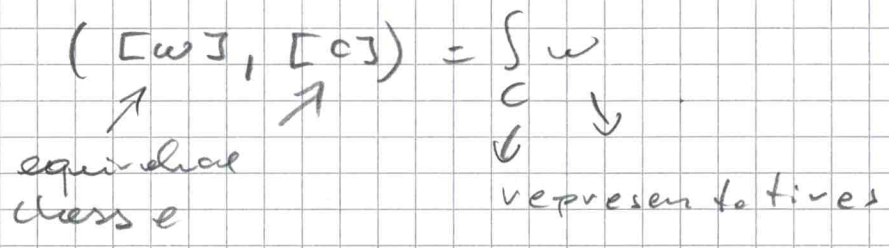 ([ω], [c]) = ∫_c ω
equivalence
classe
representatives